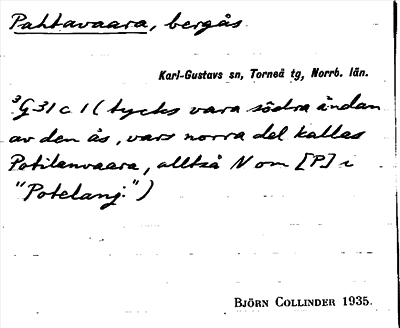 Pahtavaara, bergås.
Karl-Gustavs sn, Torneå tg, Norrb. län.
³G 31 c 1 (tycks vara södra ändan
av den ås, vars norra del kallas
Potilanvaara, alltså N om [P] i
"Potelanj.")
BJÖRN COLLINDER 1935.